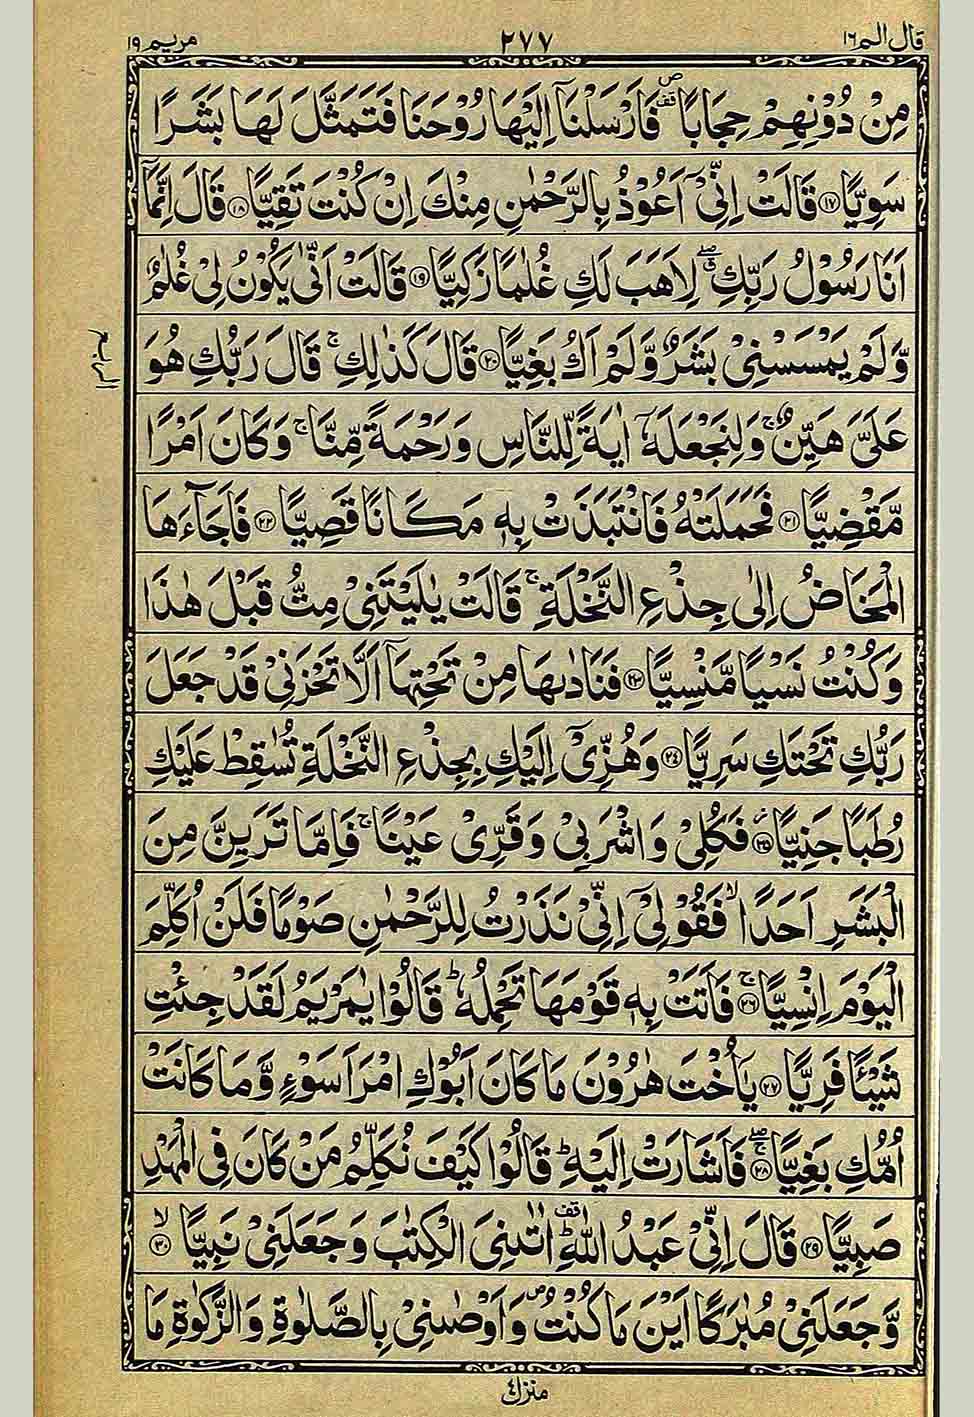 قال الم ١٦
٢٧٧
مريم ١٩
مِنْ دُوْنِهِمْ حِجَابًا ۪ۗ فَاَرْسَلْنَاۤ اِلَيْهَا رُوْحَنَا فَتَمَثَّلَ لَهَا بَشَرًا
سَوِيًّا ١٧ قَالَتْ اِنِّيْۤ اَعُوْذُ بِالرَّحْمٰنِ مِنْكَ اِنْ كُنْتَ تَقِيًّا ١٨ قَالَ اِنَّمَاۤ
اَنَا رَسُوْلُ رَبِّكِ ۖۗ لِاَهَبَ لَكِ غُلٰمًا زَكِيًّا ١٩ قَالَتْ اَنّٰى يَكُوْنُ لِيْ غُلٰمٌ
وَّلَمْ يَمْسَسْنِيْ بَشَرٌ وَّلَمْ اَكُ بَغِيًّا ٢٠ قَالَ كَذٰلِكِ ۚ قَالَ رَبُّكِ هُوَ
عَلَيَّ هَيِّنٌ ۚ وَلِنَجْعَلَهٗۤ اٰيَةً لِّلنَّاسِ وَرَحْمَةً مِّنَّا ۚ وَكَانَ اَمْرًا
مَّقْضِيًّا ٢١ فَحَمَلَتْهُ فَانْتَبَذَتْ بِهٖ مَكَانًا قَصِيًّا ٢٢ فَاَجَآءَهَا
الْمَخَاضُ اِلٰى جِذْعِ النَّخْلَةِ ۚ قَالَتْ يٰلَيْتَنِيْ مِتُّ قَبْلَ هٰذَا
وَكُنْتُ نَسْيًا مَّنْسِيًّا ٢٣ فَنَادٰىهَا مِنْ تَحْتِهَاۤ اَلَّا تَحْزَنِيْ قَدْ جَعَلَ
رَبُّكِ تَحْتَكِ سَرِيًّا ٢٤ وَهُزِّيْۤ اِلَيْكِ بِجِذْعِ النَّخْلَةِ تُسٰقِطْ عَلَيْكِ
رُطَبًا جَنِيًّا ٢٥ فَكُلِيْ وَاشْرَبِيْ وَقَرِّيْ عَيْنًا ۚ فَاِمَّا تَرَيِنَّ مِنَ
الْبَشَرِ اَحَدًا ۙ فَقُوْلِيْۤ اِنِّيْ نَذَرْتُ لِلرَّحْمٰنِ صَوْمًا فَلَنْ اُكَلِّمَ
الْيَوْمَ اِنْسِيًّا ٢٦ ۚ فَاَتَتْ بِهٖ قَوْمَهَا تَحْمِلُهٗ ؕ قَالُوْا يٰمَرْيَمُ لَقَدْ جِئْتِ
شَيْـًٔا فَرِيًّا ٢٧ يٰۤاُخْتَ هٰرُوْنَ مَا كَانَ اَبُوْكِ امْرَاَ سَوْءٍ وَّمَا كَانَتْ
اُمُّكِ بَغِيًّا ٢٨ ۖۚ فَاَشَارَتْ اِلَيْهِ ؕ قَالُوْا كَيْفَ نُكَلِّمُ مَنْ كَانَ فِي الْمَهْدِ
صَبِيًّا ٢٩ قَالَ اِنِّيْ عَبْدُ اللّٰهِ ؕ۫ اٰتٰىنِيَ الْكِتٰبَ وَجَعَلَنِيْ نَبِيًّا ٣٠ ۙ
وَّجَعَلَنِيْ مُبٰرَكًا اَيْنَ مَا كُنْتُ ۪ وَاَوْصٰىنِيْ بِالصَّلٰوةِ وَالزَّكٰوةِ مَا
منزل ٤